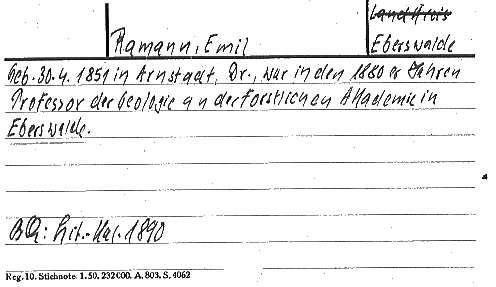 Landkreis
Ramann, Emil
Eberswalde
Geb. 30.4. 1851 in Arnstadt, Dr., war in den 1880er Jahren
Professor der Geologie an der Forstlichen Akademie in
Eberswalde.
BQ: Lit.-Kal. 1890
Reg. 10. Stichnote. 1. 50. 232000. A. 803. S. 4062